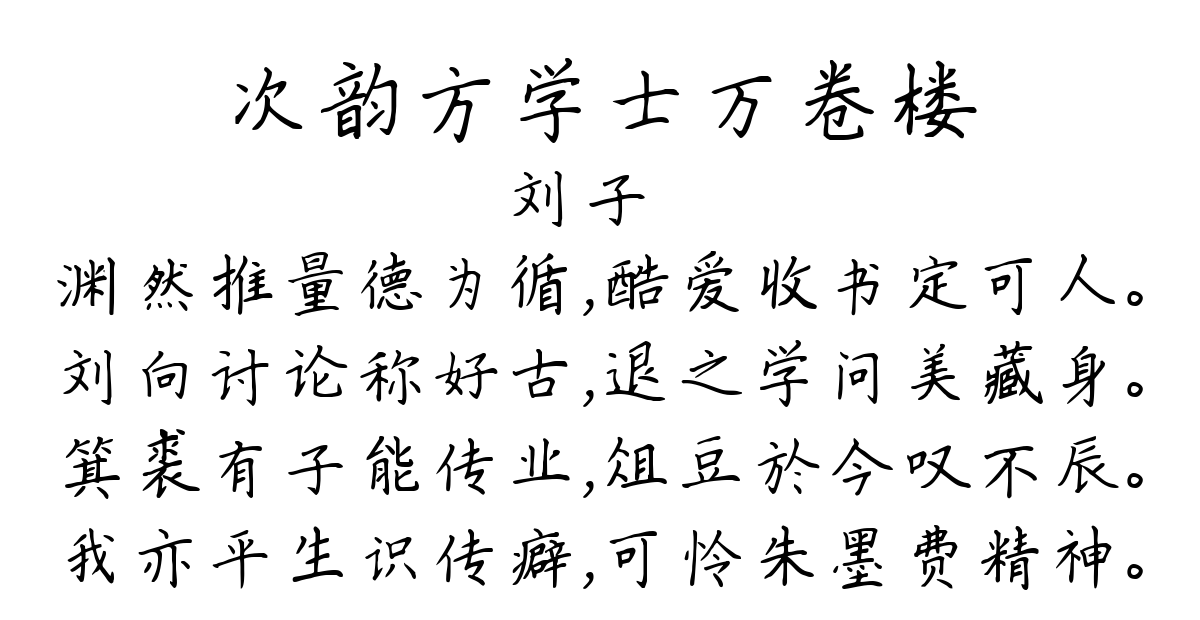 次韵方学士万卷楼
刘子
渊然推量德为循,酷爱收书定可人。
刘向讨论称好古,退之学问美藏身。
箕裘有子能传业,俎豆於今叹不辰。
我亦平生识传癖,可怜朱墨费精神。